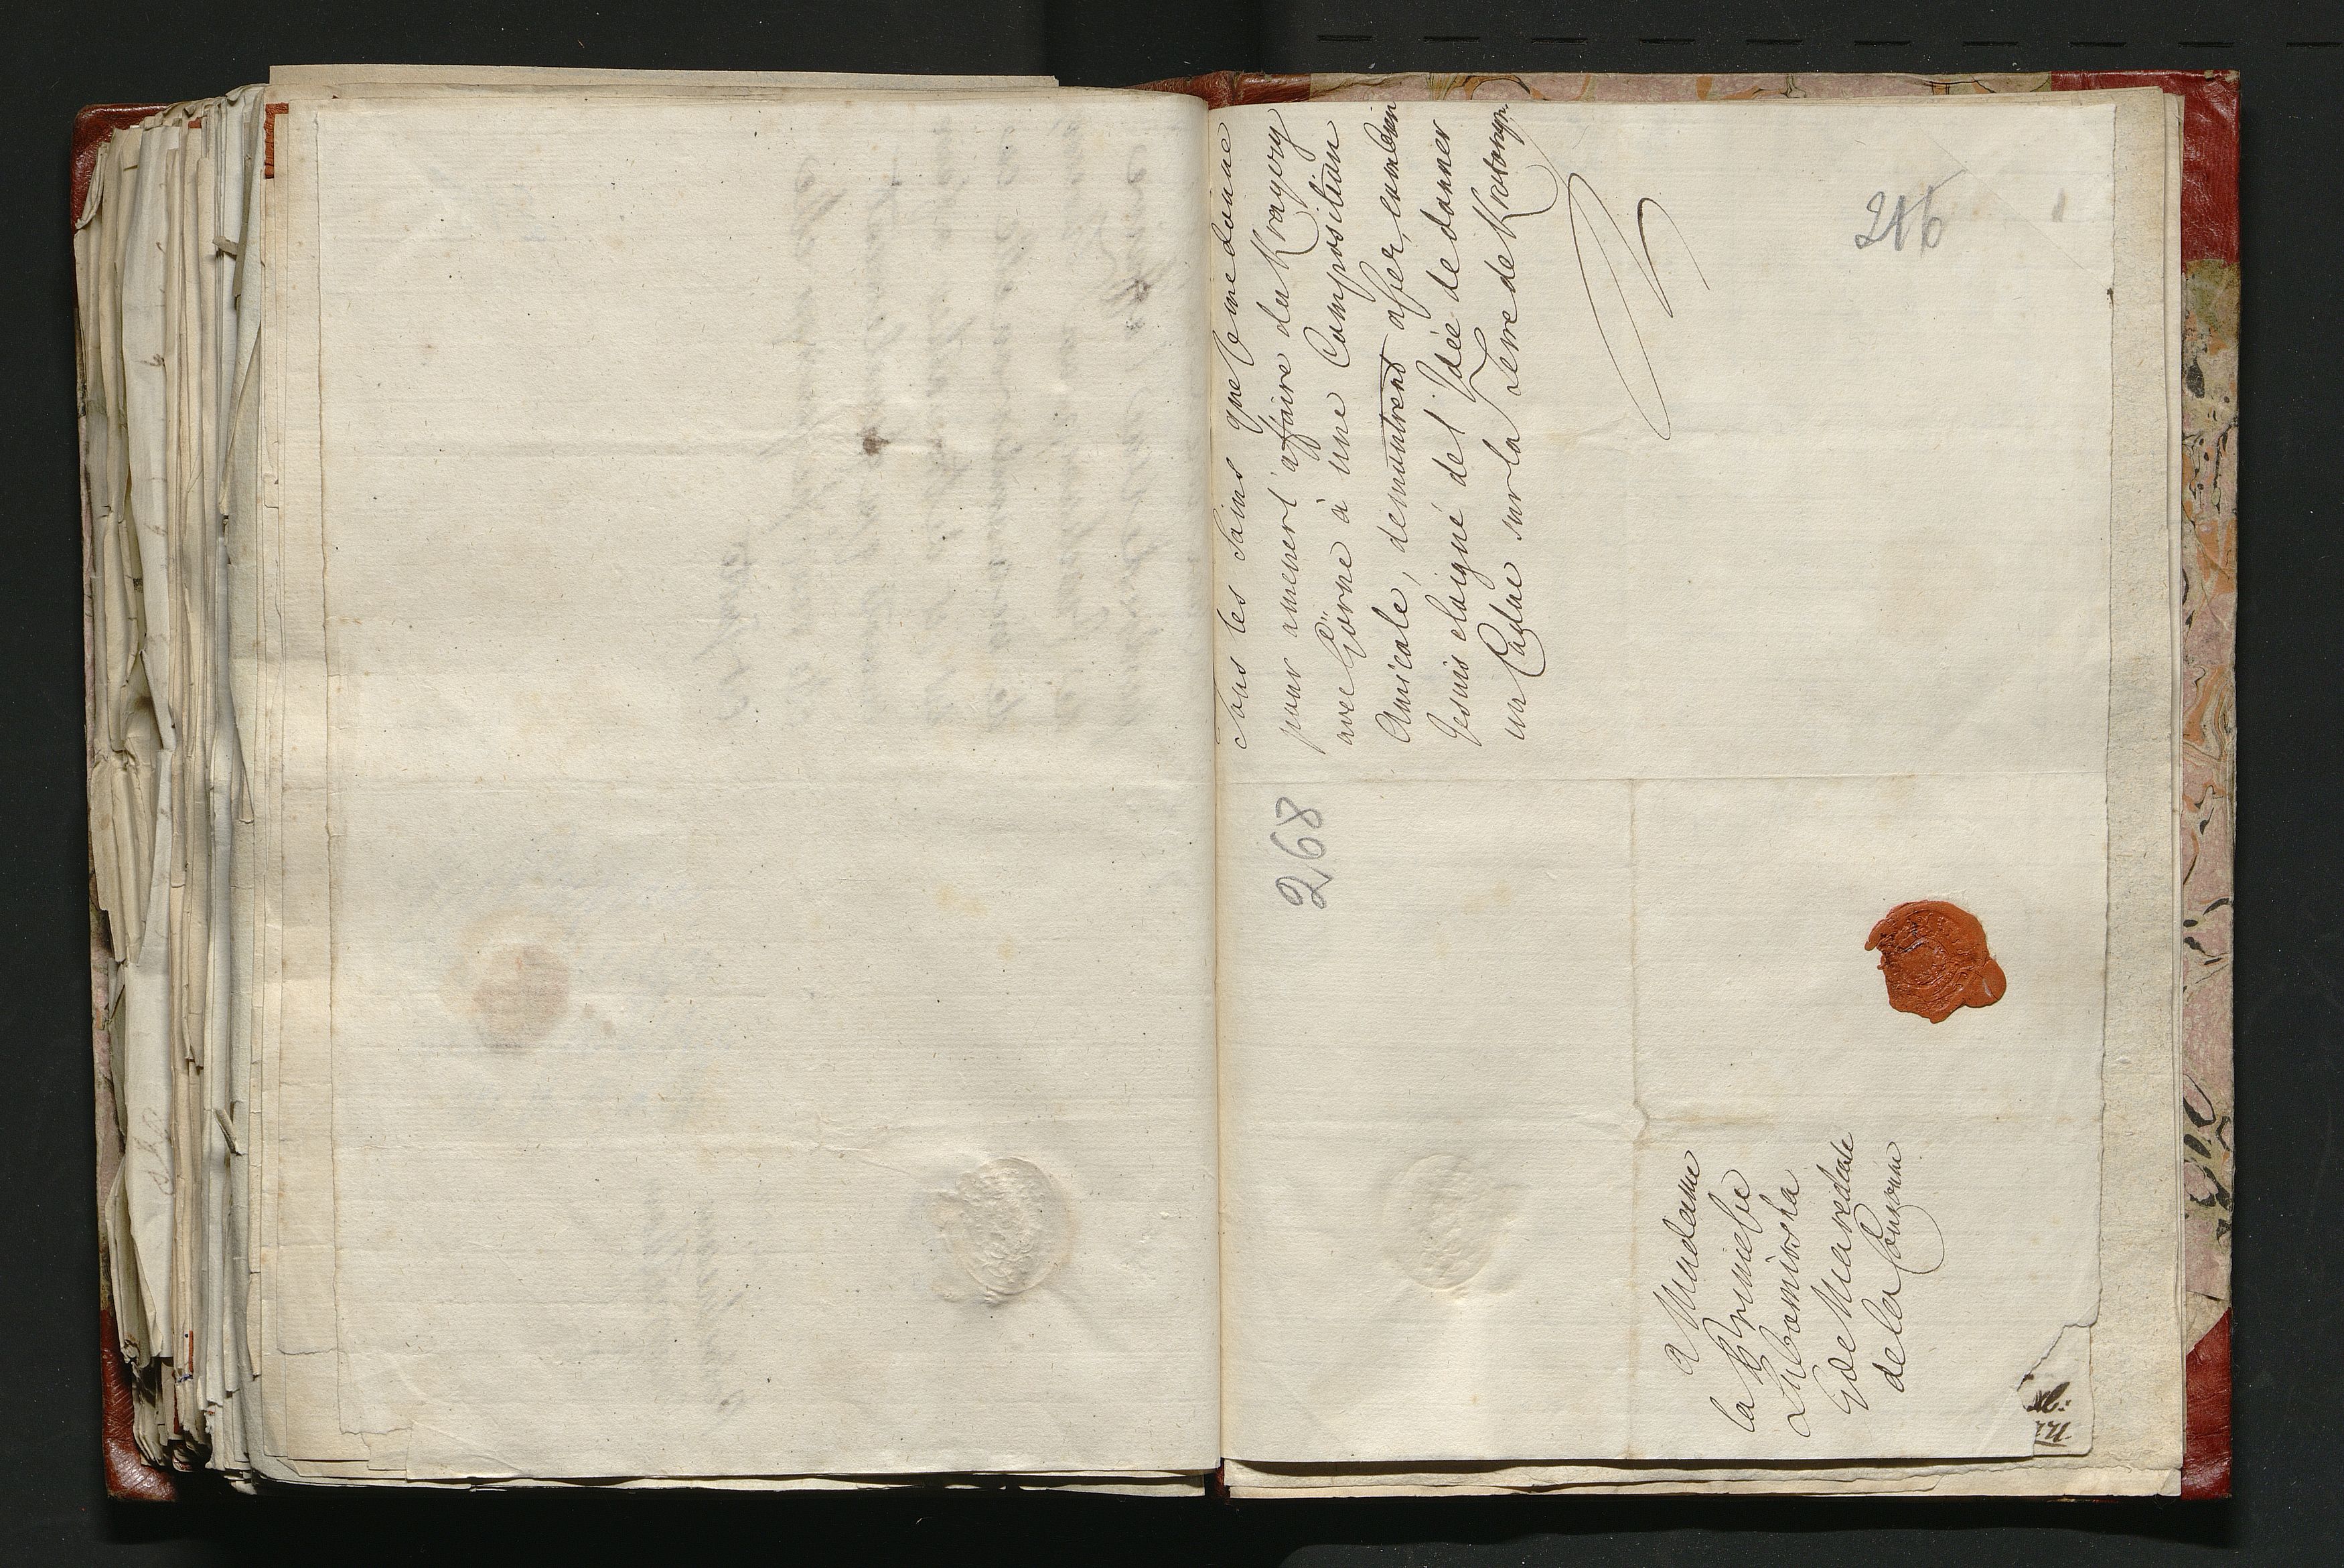 Tous les Soins que je me donne
pour amener l'affaire du Kragery
avec Görne à une Composition
Amicale, demontrent assez, combien
Je suis eloigné de l'Idée de donner
un Caduc sur la Terre de
216
268
a Madame
la Princesse
Lubomirska
Gde Marechale
de la Couronne